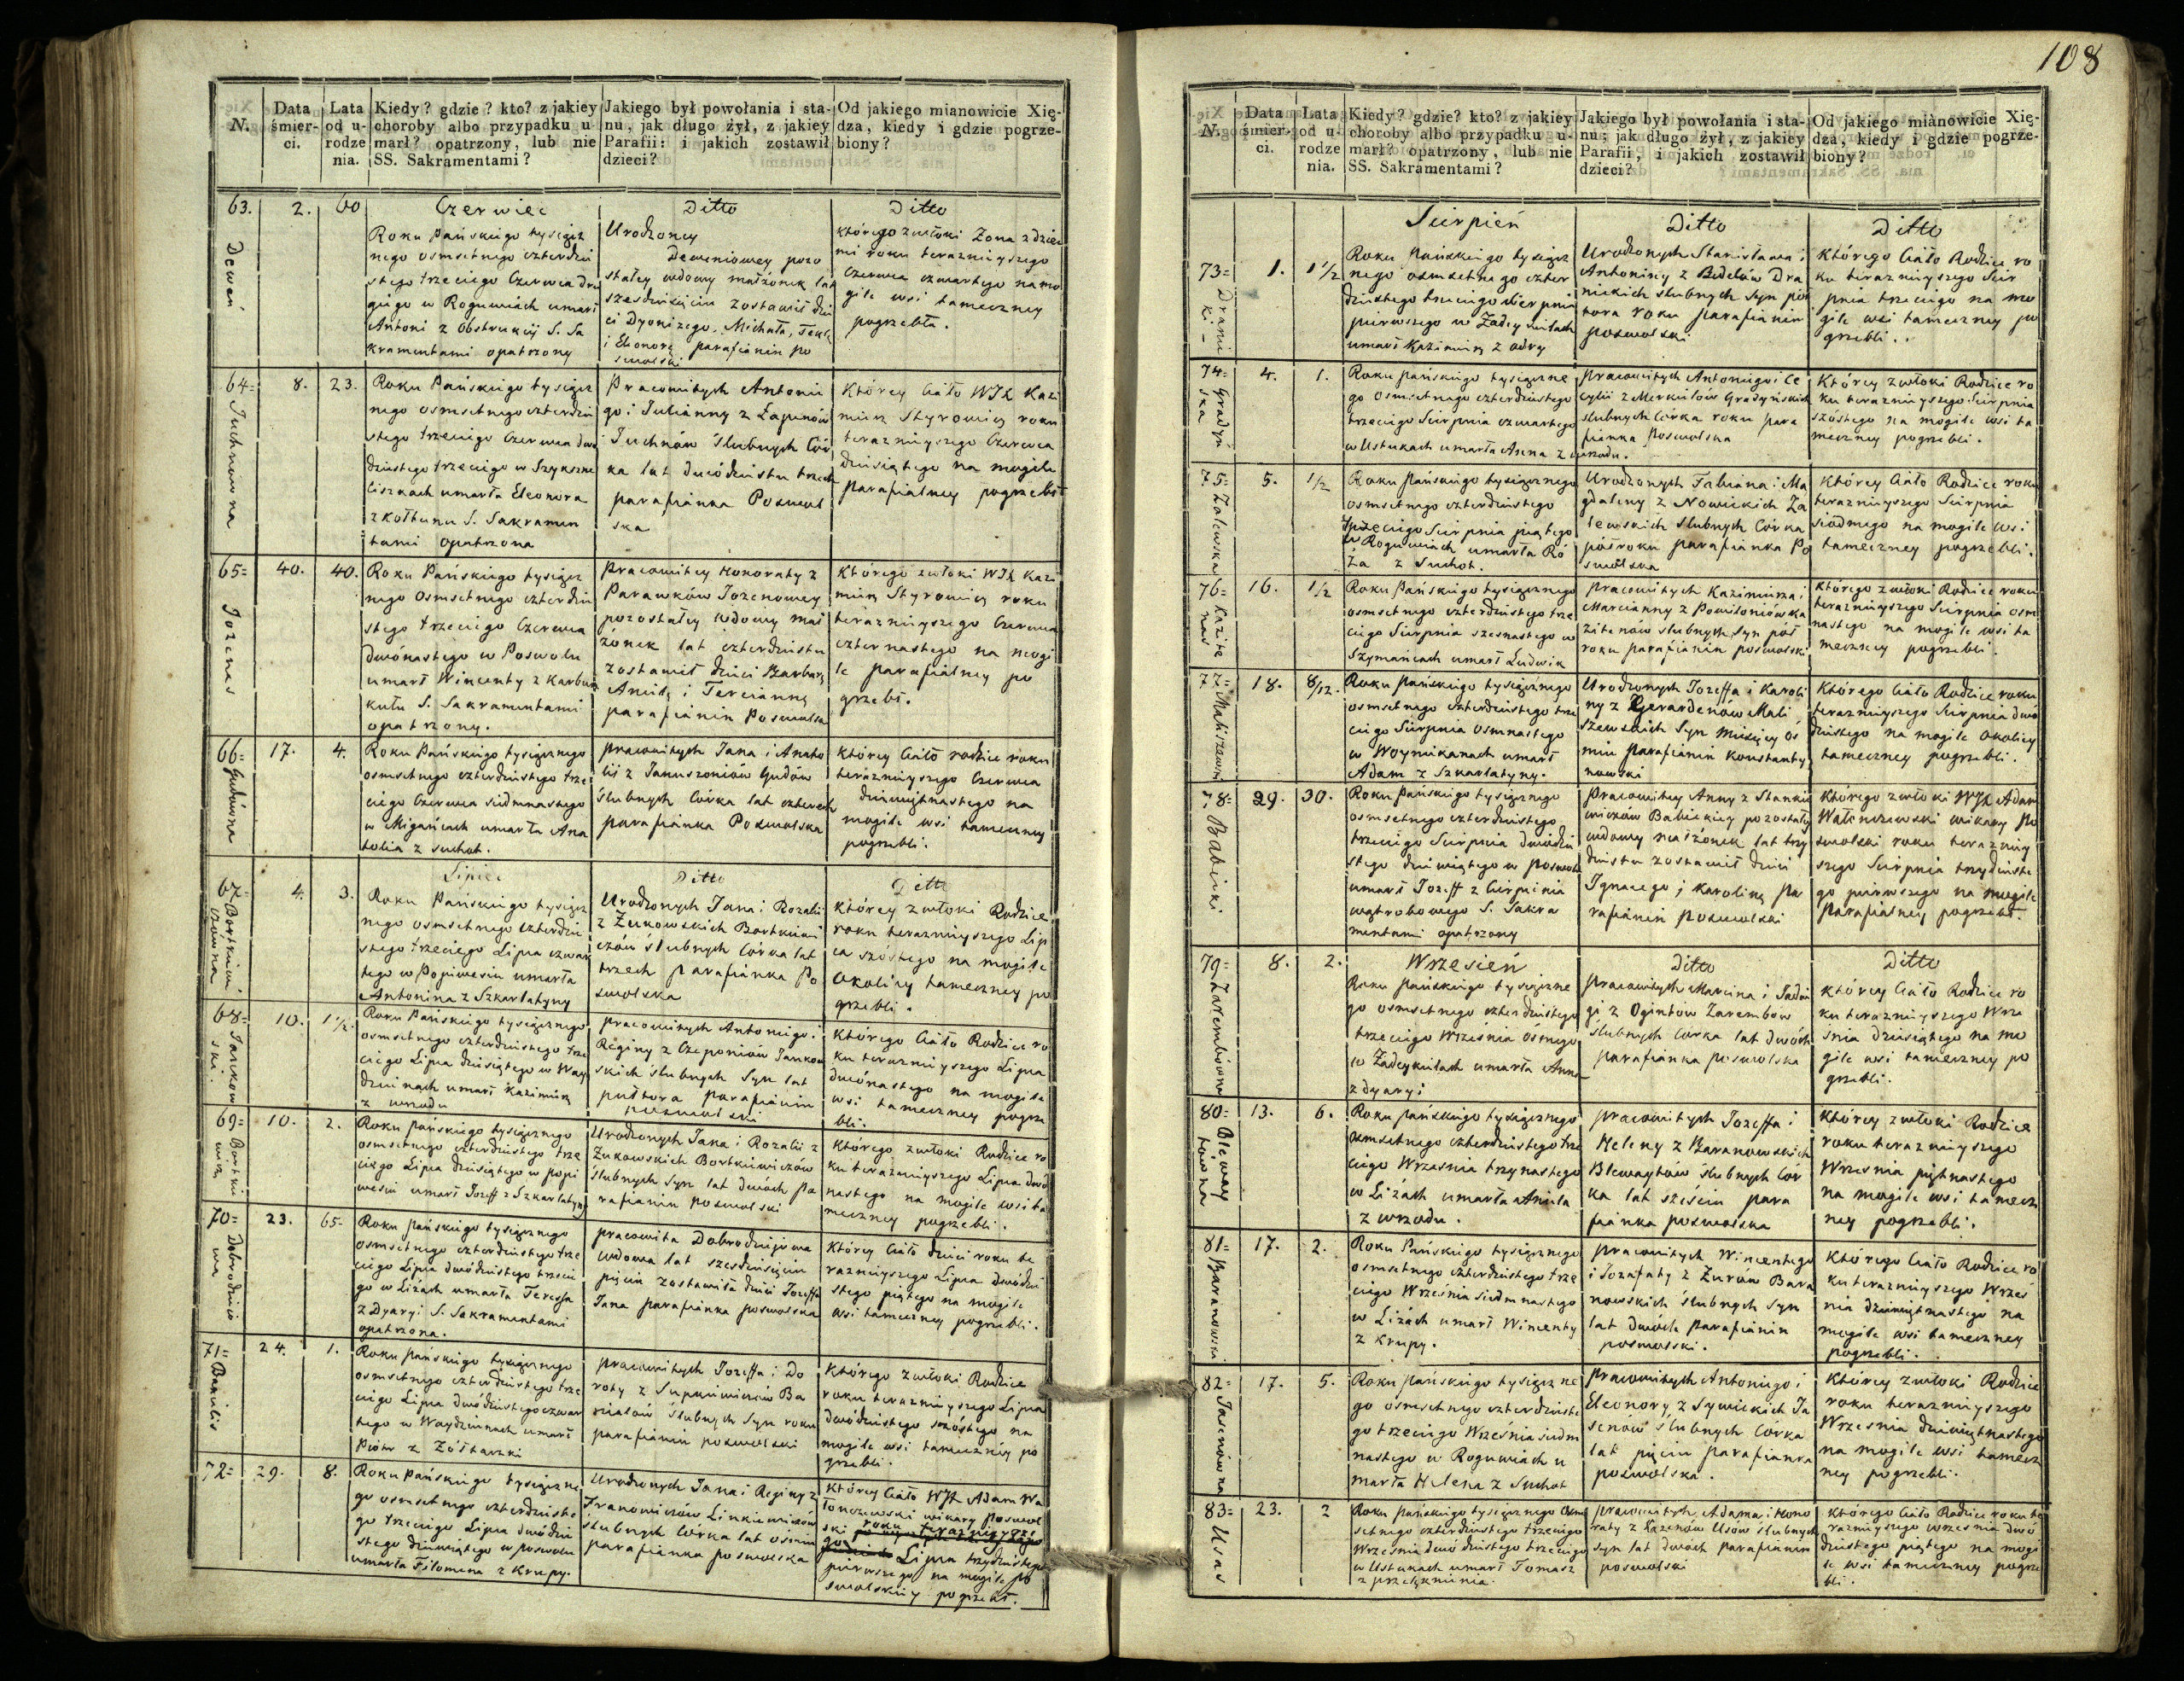 N.
Data śmierci.
Lata od urodzenia.
Kiedy? gdzie? kto? z jakiey
choroby albo przypadku u
marł? opatrzony, lub nie
SS. Sakramentami?
Jakiego był powołania i sta-
nu, jak długo żył, z jakiey
Parafii: i jakich zostawił
dzieci?
Od jakiego mianowicie Xię-
dza, kiedy i gdzie pogrze-
biony?
63.
Dewań
2.
60
Czerwiec
Roku Pańskiego tysiącz
nego osmsetnego czterdzie
stego trzeciego Czerwca dru
giego w Roguwiach umarł
Antoni z Obstrukcij S. Sa
kramentami opatrzony
Ditto
Urodzoney
Deweniowey pozo
stałey wdowy małżonek lat
szesdziesięciu zostawił dzie
ci Dyonizego, Michała, Teklę
i Eleonorę parafianin po
swolski
Ditto
którego zwłoki Zona z dzieć
mi roku terazniyszego
Czerwca czwartego na mo
gile wsi tameczney
pogrzebła.
64=
Juchniewna
8.
23.
Roku Pańskiego tysiącz
nego osmsetnego czterdzie
stego trzeciego Czerwca dwu
dziestego trzeciego w Szyksznie
liszkach umarła Eleonora
z kołtuna S. Sakramen
tami opatrzona
Pracowitych Antonie
go i Julianny z Łapinów
Juchnów Slubnych Cór
ka lat dwódziestu trzech
parafianka Poswol
ska
Którey Ciało WJX Kazi
mierz Styrowicz roku
terazniyszego Czerwca
dziesiątego na mogile
parafialney pogrzebł
65=
Jozenas
40.
40.
Roku Pańskiego tysiącz
nego osmsetnego czterdzie
stego trzeciego Czerwca
dwónastego w Poswolu
umarł Wincenty z karbun
kułu S. Sakramentami
opatrzony.
pracowitey Honoraty z
Parawków Jozenowey
pozostałey wdowy mał
żonek lat czterdziestu
zostawił dzieci Barbarę
Anielę i Tercianną
parafianin Poswolski
Którego zwłoki WJX Kazi
mierz Styrowicz roku
terazniyszego Czerwca
czternastego na mogi
le parafialney po
grzebł.
66=
Gudówna
17.
4.
Roku Pańskiego tysiącznego
osmsetnego czterdziestego trze
ciego Czerwca siedmnastego
w Migańcach umarła Ana
tolia z suchot.
pracowitych Jana i Anato
lij z Januszoniów Gudów
ślubnych Córka lat czterech
parafianka Poswolska
którey Ciało rodzice roku
terazniyszego Czerwca
dziewiętnastego na
mogile wsi tameczney
pogrzebli.
67=
Bortkiewi
czowna
4.
3.
Lipiec
Roku Pańskiego tysiącz
nego osmsetnego czterdzie
stego trzeciego Lipca czwar
tego w Popiwesiu umarła
Antonina z Szkarlatyny
Ditto
Urodzonych Jana i Rozalij
z Żukowskich Bortkiewi
czów slubnych Córka lat
trzech parafianka Po
swolska
Ditto
którey zwłoki Rodzice
roku terazniyszego Lip
ca szóstego na mogile
okolicy tameczney po
grzebli.
68=
Jankow
ski.
10.
1 1/2.
Roku Pańskiego tysiącznego
osmsetnego czterdziestego trze
ciego Lipca dziesiątego w Way
dzunach umarł Kazimierz
z wrzodu
pracowitych Antoniego i
Reginy z Czeponiów Jankow
skich ślubnych Syn lat
pułtora parafianin
poswolski
Którego Ciało Rodzice ro
ku terazniyszego Lipca
dwónastego na mogile
wsi tameczney pogrze
bli.
69=
Bortkie
wicz
10.
2.
Roku pańskiego tysiącznego
osmsetnego czterdziestego trze
ciego Lipca dziesiątego w popi
wesiu umarł Jozeff z Szkarlatyny
Urodzonych Jana i Rozalii z
Żukowskich Bortkiewiczów
ślubnych Syn lat dwóch pa
rafianin poswolski
którego zwłoki Rodzice ro
ku terazniyszego Lipca dwó
nastego na mogile wsi ta
meczney pogrzebli.
70=
Dobrodzieio
wa
23.
65.
Roku pańskiego tysiącznego
osmsetnego czterdziestego trze
ciego Lipca dwódziestego trzecie
go w Liżach umarła Teressa
z Dyaryi S. Sakramentami
opatrzona.
pracowita Dobrodziejowa
wdowa lat szesdziesięciu
pięciu zostawiła dzieci Jozeffa
Jana parafianka poswolska
Którey Ciało dzieci roku te
razniyszego Lipca dwódzie
stego piątego na mogile
wsi tameczney pogrzebli.
71=
Baniulis
24.
1.
Roku pańskiego tysiącznego
osmsetnego czterdziestego trze
ciego Lipca dwódziestego czwar
tego w Waydzunach umarł
Piotr z Żółtaczki
pracowitych Jozeffa i Do
roty z Supkiewiczów Ba
niulów Ślubnych Syn roku
parafianin poswolski
Którego zwłoki Rodzice
roku terazniyszego Lipca
dwódziestego szóstego na
mogile wsi tameczney po
grzebli.
72=
29.
8.
Roku Pańskiego tysiączne
go osmsetnego czterdzieste
go trzeciego Lipca dwódzie
stego dziewiątego w poswolu
umarła Filomena z Krupy.
Urodzonych Jana i Reginy z
Iwanowiczów Linkiewiczów
slubnych Córka lat osmiu
parafianka poswolska
Którey Ciało WJX Adam Wa
łonczewski wikary poswol
ski roku terazniysze
go Lipca trzydziestego
pierwszego na mogile po
swolskiey pogrzebł.
108
N.
Data śmierci.
Lata od urodzenia.
Kiedy? gdzie? kto? z jakiey
choroby albo przypadku u-
marł? opatrzony, lub nie
SS. Sakramentami?
Jakiego był powołania i sta-
nu; jak długo żył, z jakiey
Parafii, i jakich zostawił
dzieci?
Od jakiego miànowicie Xię-
dza, kiedy i gdzie pogrze-
biony?
73=
Dranic
ki
1.
1 1/2
Sierpień
Roku Pańskiego tysiącz
nego osmsetnego czter
dziestego trzeciego sierpnia
pierwszego w Zadeykiszach
umarł Kazimierz z odry
Ditto
Urodzonych Stanisława i
Antoniny z Bedelów Dra
nickich slubnych Syn pół
tora roku parafianin
poswolski
Ditto
Którego Ciało Rodzice ro
ku terazniyszego Sier
pnia trzeciego na mo
gile wsi tameczney po
grzebli.
74=
Gradyń
ska
4.
1.
Roku pańskiego tysiączne
go osmsetnego czterdziestego
trzeciego Sierpnia czwartego
w Ustukach umarła Anna z wrzodu.
pracowitych Antoniego i Ce
cylii z Merkielów Gradyńskich
slubnych Córka roku para
fianka Poswolska
Którey zwłoki Rodzice ro
ku terazniyszego Sierpnia
szóstego na mogile wsi ta
meczney pogrzebli.
75=
Zalewska
5.
1/2
Roku Pańskiego tysiącznego
osmsetnego czterdziestego
trzeciego Sierpnia piątego
w Roguwiach umarła Ró
ża z Suchot.
Urodzonych Fabiana i Ma
gdaleny z Nowickich Za
lewskich slubnych Córka
półroku parafianka Po
swolska
Którey Ciało Rodzice roku
terazniyszego Sierpnia
siódmego na mogile wsi
tameczney pogrzebli.
76=
Kazite
nas
16.
1/2
Roku Pańskiego tysiącznego
osmsetnego czterdziestego trze
ciego Sierpnia szesnastego w
Szymańcach umarł Ludwik
pracowitych Kazimierza i
Marcianny z Powiloniów Ka
zitenów slubnych Syn pół
roku parafianin poswolski
którego zwłoki Rodzice roku
terazniyszego Sierpnia osm
nastego na mogile wsi ta
meczney pogrzebli.
77=
18.
8/12.
Roku Pańskiego tysiącznego
osmsetnego czterdziestego trze
ciego Sierpnia osmnastego
w Woynikanach umarł
Adam z Szkarlatyny.
Urodzonych Jozeffa i Karoli
ny z Gerardenów Mali
szewskich Syn miesięcy oś
miu parafianin konstanty
nowski
Którego Ciało Rodzice roku
terazniyszego Sierpnia dwó
dziestego na mogile okolicy
tameczney pogrzebli.
78=
Babicki
29.
30.
Roku Pańskiego tysiącznego
osmsetnego czterdziestego
trzeciego Sierpnia dwódzie
stego dziewiątego w poswolu
umarł Jozeff z Cierpienia
wątrobowego S. Sakra
mentami opatrzony
Pracowitey Anny z Stankie
wiczów Babickiey pozostałey
wdowy małżonek lat trzy
dziestu zostawił dzieci
Ignacego i Karolinę pa
rafianin poswolski
Którego zwłoki WJX Adam
Wałonczewski wikary po
swolski roku terazniy
szego Sierpnia trzydzieste
go pierwszego na mogile
parafialney pogrzebł.
79=
Zarembówna
8.
2.
Wrzesień
Roku pańskiego tysiączne
go osmsetnego czterdziestego
trzeciego Września ósmego
w Zadeykiszach umarła Anna
z dyaryi
Ditto
pracowitych Marcina i Jadwi
gi z Ogintow Zarembow
Ślubnych Corka lat dwóch
parafianka poswolska
Ditto
którey Ciało Rodzice ro
ku terazniyszego Wrze
śnia dziesiątego na mo
gile wsi tameczney po
grzebli.
80=
Blewáy
tówna
13.
6.
Roku pańskiego tysiącznego
osmsetnego czterdziestego trze
ciego Września trzynastego
w Liżach umarła Aniela
z wrzodu.
pracowitych Jozeffa i
Heleny z Baranowskich
Blewaytów ślubnych Cór
ka lat sześciu para
fianka poswolska
którey zwłoki Rodzice
roku terazniyszego
Września piętnastego
na mogile wsi tamecz
ney pogrzebli.
81=
Baranowski
17.
2.
Roku Pańskiego tysiącznego
osmsetnego czterdziestego trze
ciego Września siedmnastego
w Liżach umarł Wincenty
z Krupy.
pracowitych Wincentego
i Jozafaty z Żurów Bara
nowskich ślubnych Syn
lat dwóch parafianin
poswolski.
Którego Ciało Rodzice ro
ku terazniyszego Wrześ
nia dziewiętnastego na
mogile wsi tameczney
pogrzebli.
82=
Jasenówna
17.
5.
Roku pańskiego tysiączne
go osmsetnego czterdzieste
go trzeciego Września siedm
nastego w Roguwiach u
marła Helena z Suchot
pracowitych Antoniego i
Eleonory z Sywickich Ja
senów Slubnych Córka
lat pięciu parafianka
poswolska.
Którey zwłoki Rodzice
roku terazniyszego
Września dziewiętnastego
na mogile wsi tamecz
ney pogrzebli.
83=
Usas
23.
2
Roku pańskiego tysiącznego osm
setnego czterdziestego trzeciego
Września dwódziestego trzeciego
w Ustukach umarł Tomasz
z przelęknienia.
pracowitych Adama i Hono
raty z Łazenów Usów slubnych
syn lat dwóch parafianin
poswolski
którego Ciało Rodzice roku te
razniyszego września dwó
dziestego piątego na mogi
le wsi tameczney pogrze
bli.